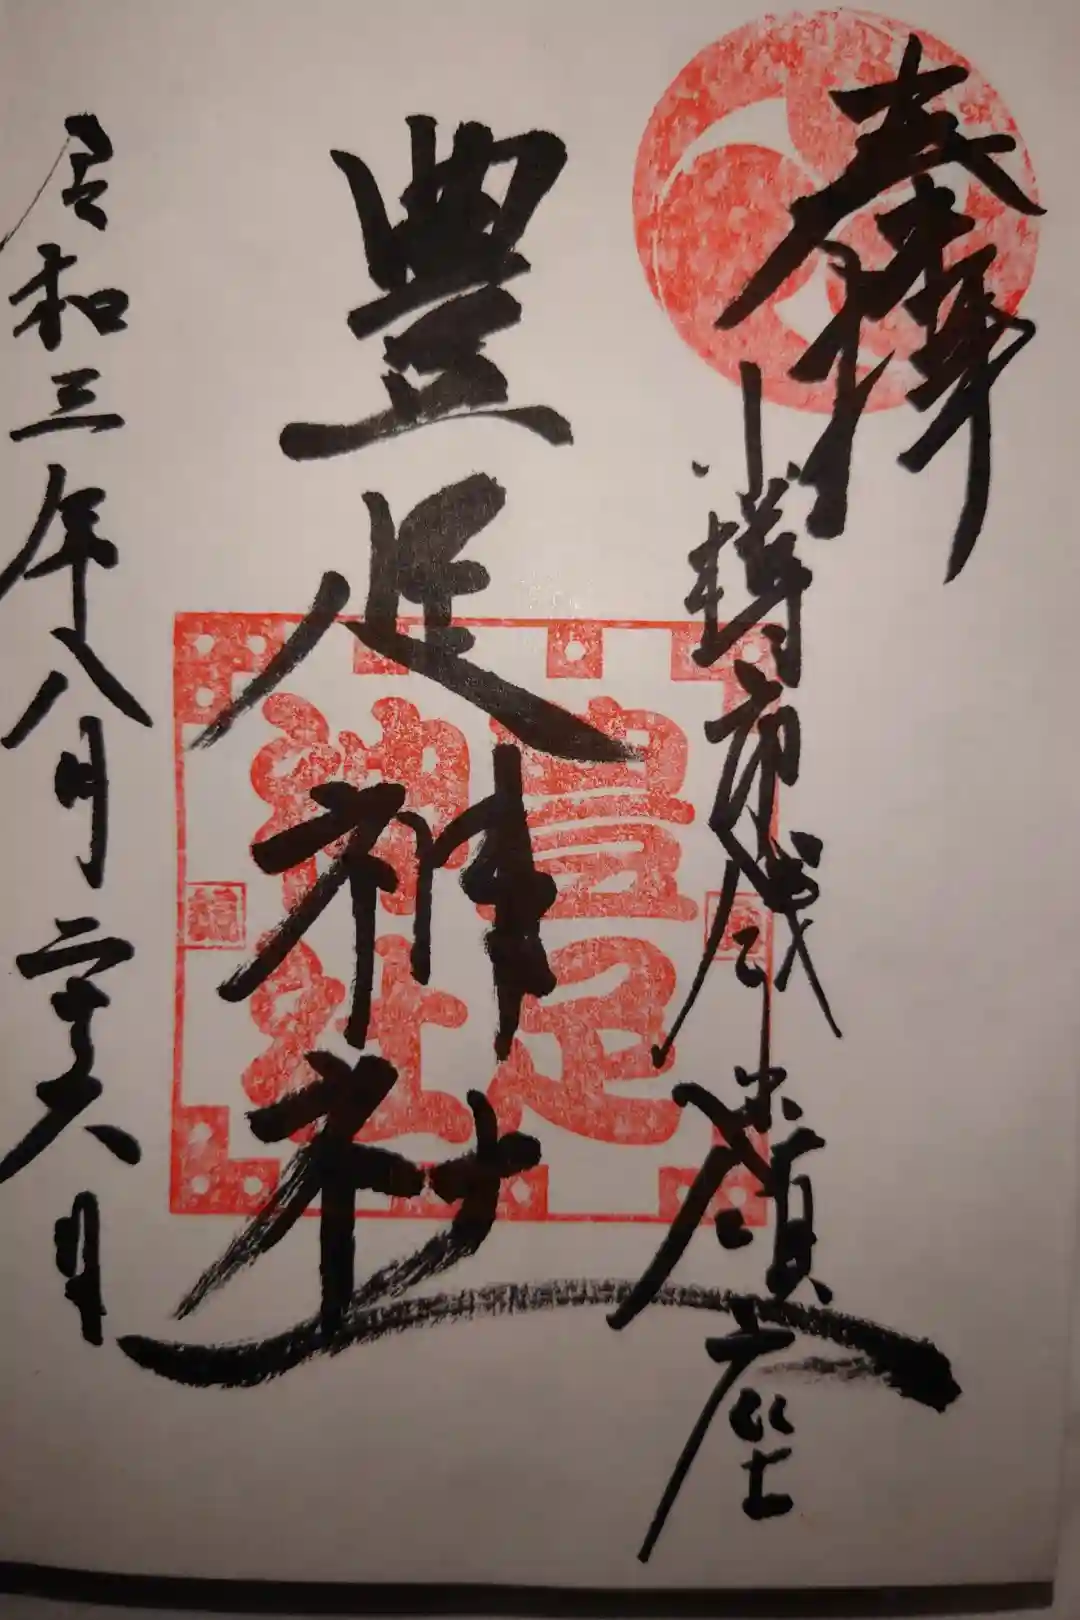 奉拝
小樽市銭函鎮座
豊足神社
豊足
神社
令和三年八月二十六日